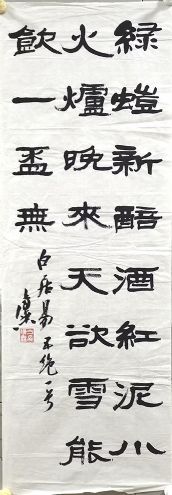 綠螘新醅酒紅泥小
火爐晚來天欲雪能
飲一盃無
白居易五绝一首